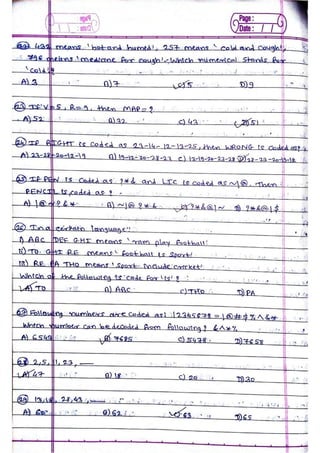 Page :
Date :
432 means 'hot and humed', 257 means 'cold and cough',
796 means 'medicine for cough'. Which numerical stands for
'cold'?
A) 3 B) 7 C) 5 D) 9
IF V=5, R=9, then MAP=?
A) 52 B) 32 C) 42 D) 51
24 IF RIGHT is coded as 23-14-12-13-25, then WRONG is coded as?
A) 23-28-20-12-19 B) 19-12-20-28-23 C) 12-19-20-23-28 D) 28-23-20-19-12
25 IF PEN is coded as ?*& and LIC is coded as ~|@. Then
PENCIL is coded as ?
A) |@~?&* B) ~|@?*& C) ?*&@|~ D) ?*&@|$
26 In a certain language"
I) ABC DEF GHI means 'ram play football'
II) TO GHI RE means 'football is sport'
III) RE PA THO means 'sport include cricket'
Which of the following is code for 'is'?
A) TO B) ABC C) THO D) PA
27 Following numbers are coded as: 12345678 = |@#$%^&*
Which number can be decoded from following? &^*%
A) 6543 B) 7685 C) 5478 D) 7658
28 2, 5, 11, 23, ——
A) 47 B) 18 C) 20 D) 30
29 13, 18, 28, 43, ——
A) 60 B) 62 C) 63 D) 65